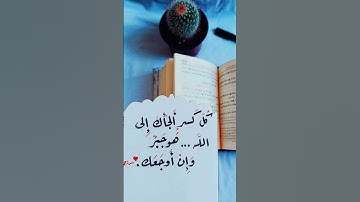 كُل كَسر ألجأك إِلى
الله ... هُو جَبرٌ
وَإِنْ أَوجَعَك .